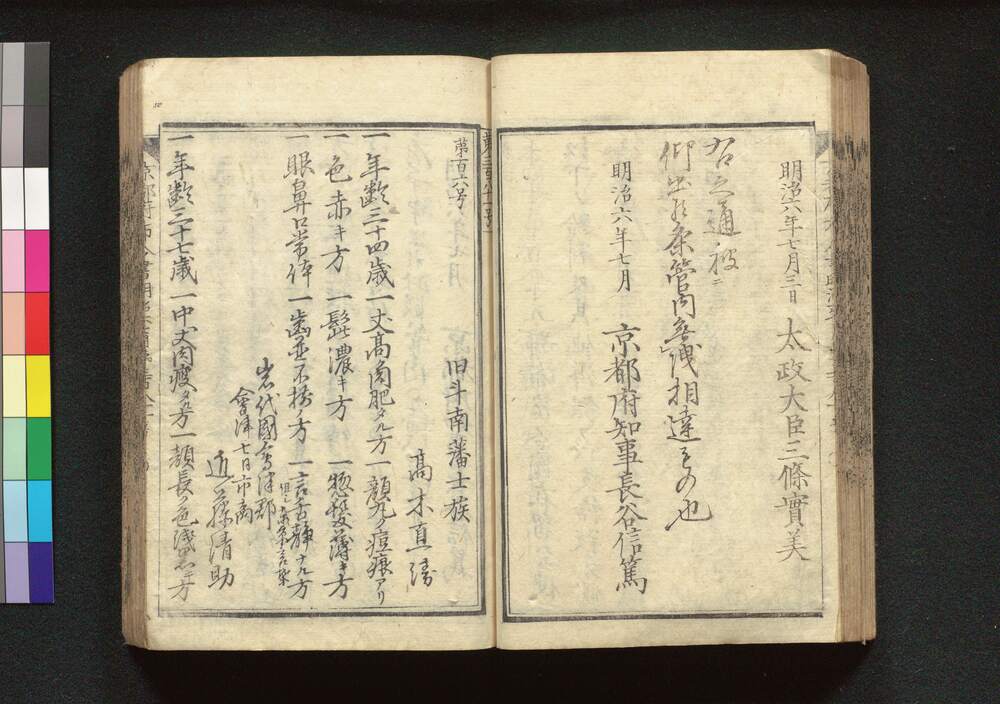 明治六年七月三日 太政大臣三條實美
右之通被二
仰出候条管内無洩相達るもの也
明治六年七月 京都府知事長谷信篤
第三百八十一号
第百六十八号
旧斗南藩士族
高木直
一年齢三十四歳一丈高肉肥タル方一顔丸ク痘痕アリ
一色赤キ方 一髭濃キ方 一惣髪薄キ方
一眼鼻口常体 一歯並不揃ノ方 一言舌静ナル方
但シ奥州言葉
岩代國會津郡
會津七日市商
近藤清助
一年齢三十七歳一中丈肉瘦タル方一顔長ク色浅黒キ方